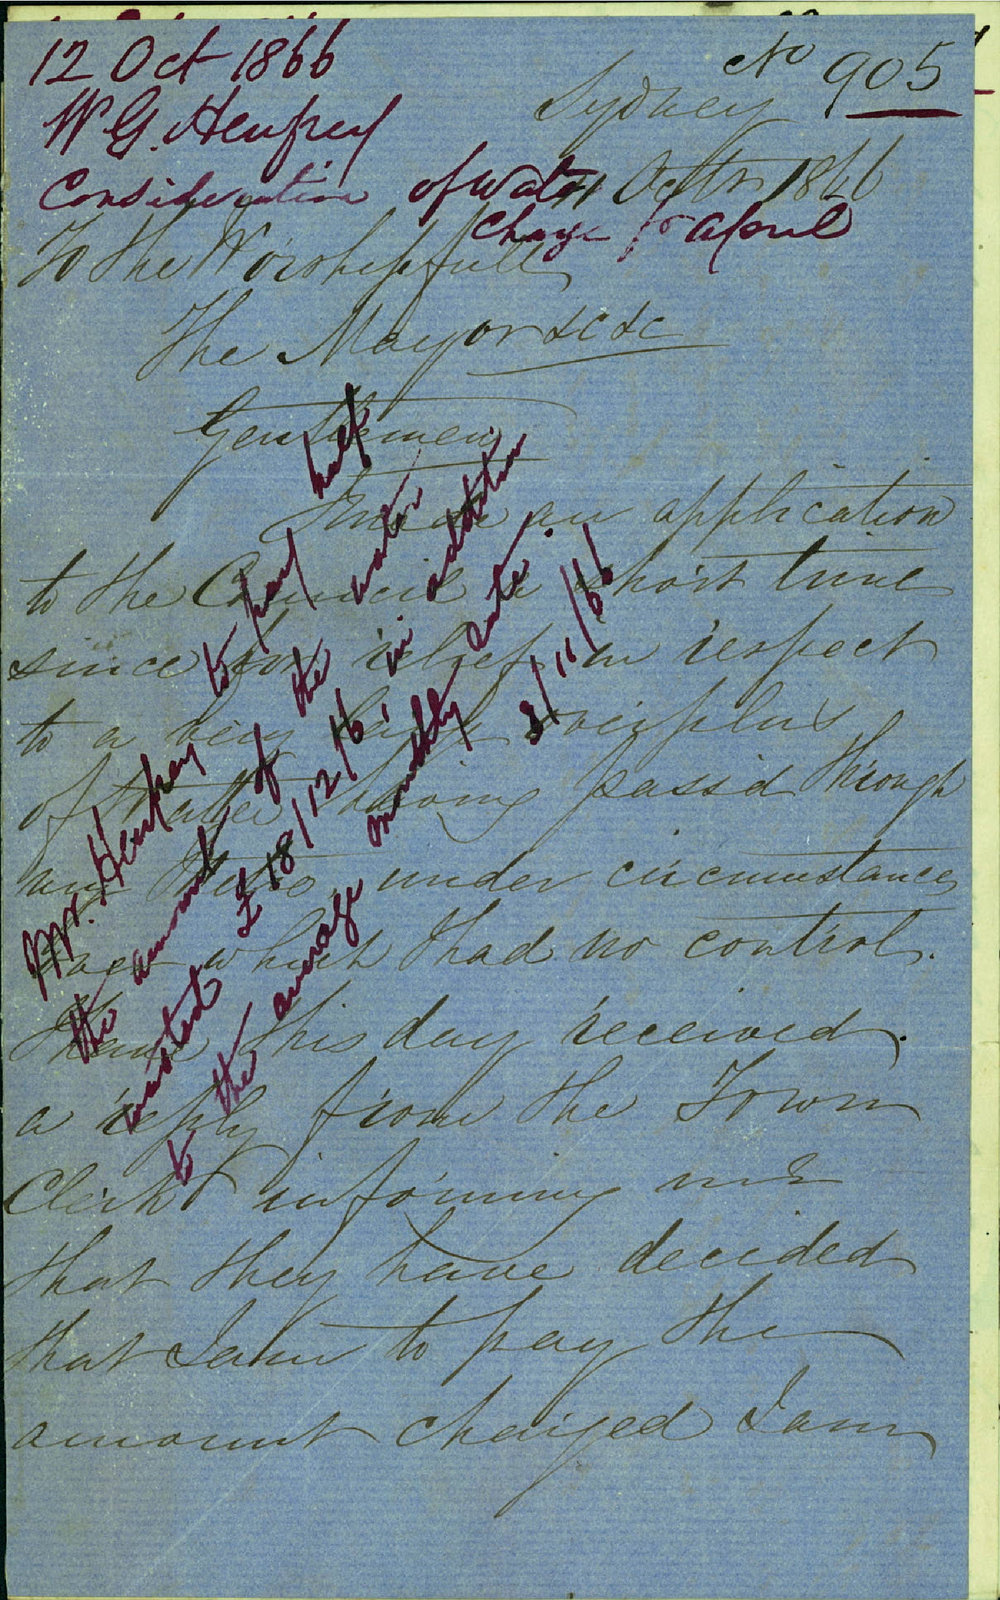 12 Oct 1866
No 905
W. G. Henfrey
Sydney
Consideration of water
11 Octr 1866
charge for April
To the Worshipfull
The Mayor &c &c
Gentlemen
I made an application
to the Council a short time
since for relief in respect
to a very large surplus
of Water having pass'd through
my Metre under circumstances
over which I had no control.
I have this day received
a reply from the Town
Clerk informing me
that they have decided
that I am to pay the
amount charged I am
Mr. Henfrey to pay half
the amount of the water
wasted £18/12/6 in addition
to the average monthly rate.
3/11/66